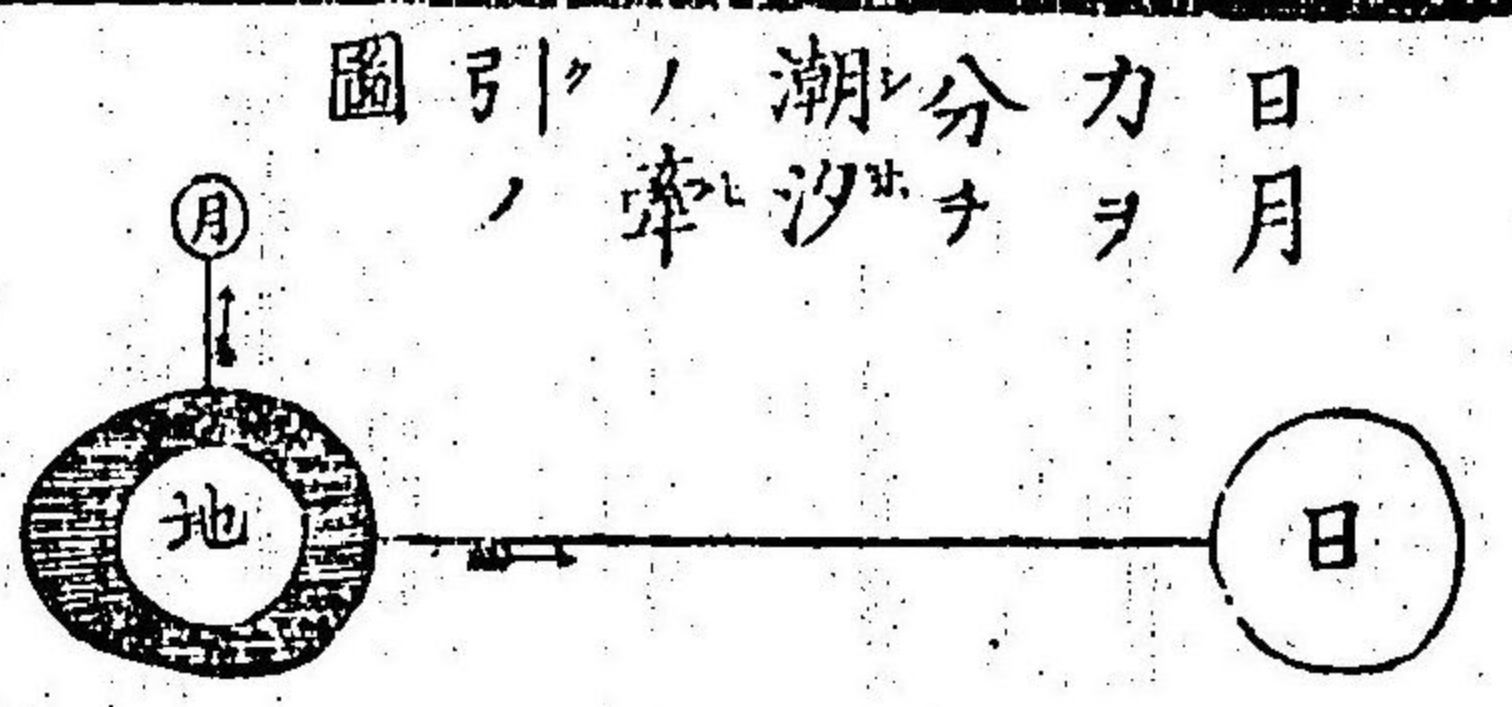 日月
力ヲ
分チ
潮汐
ノ牽
引ノ
圖
月
地
日